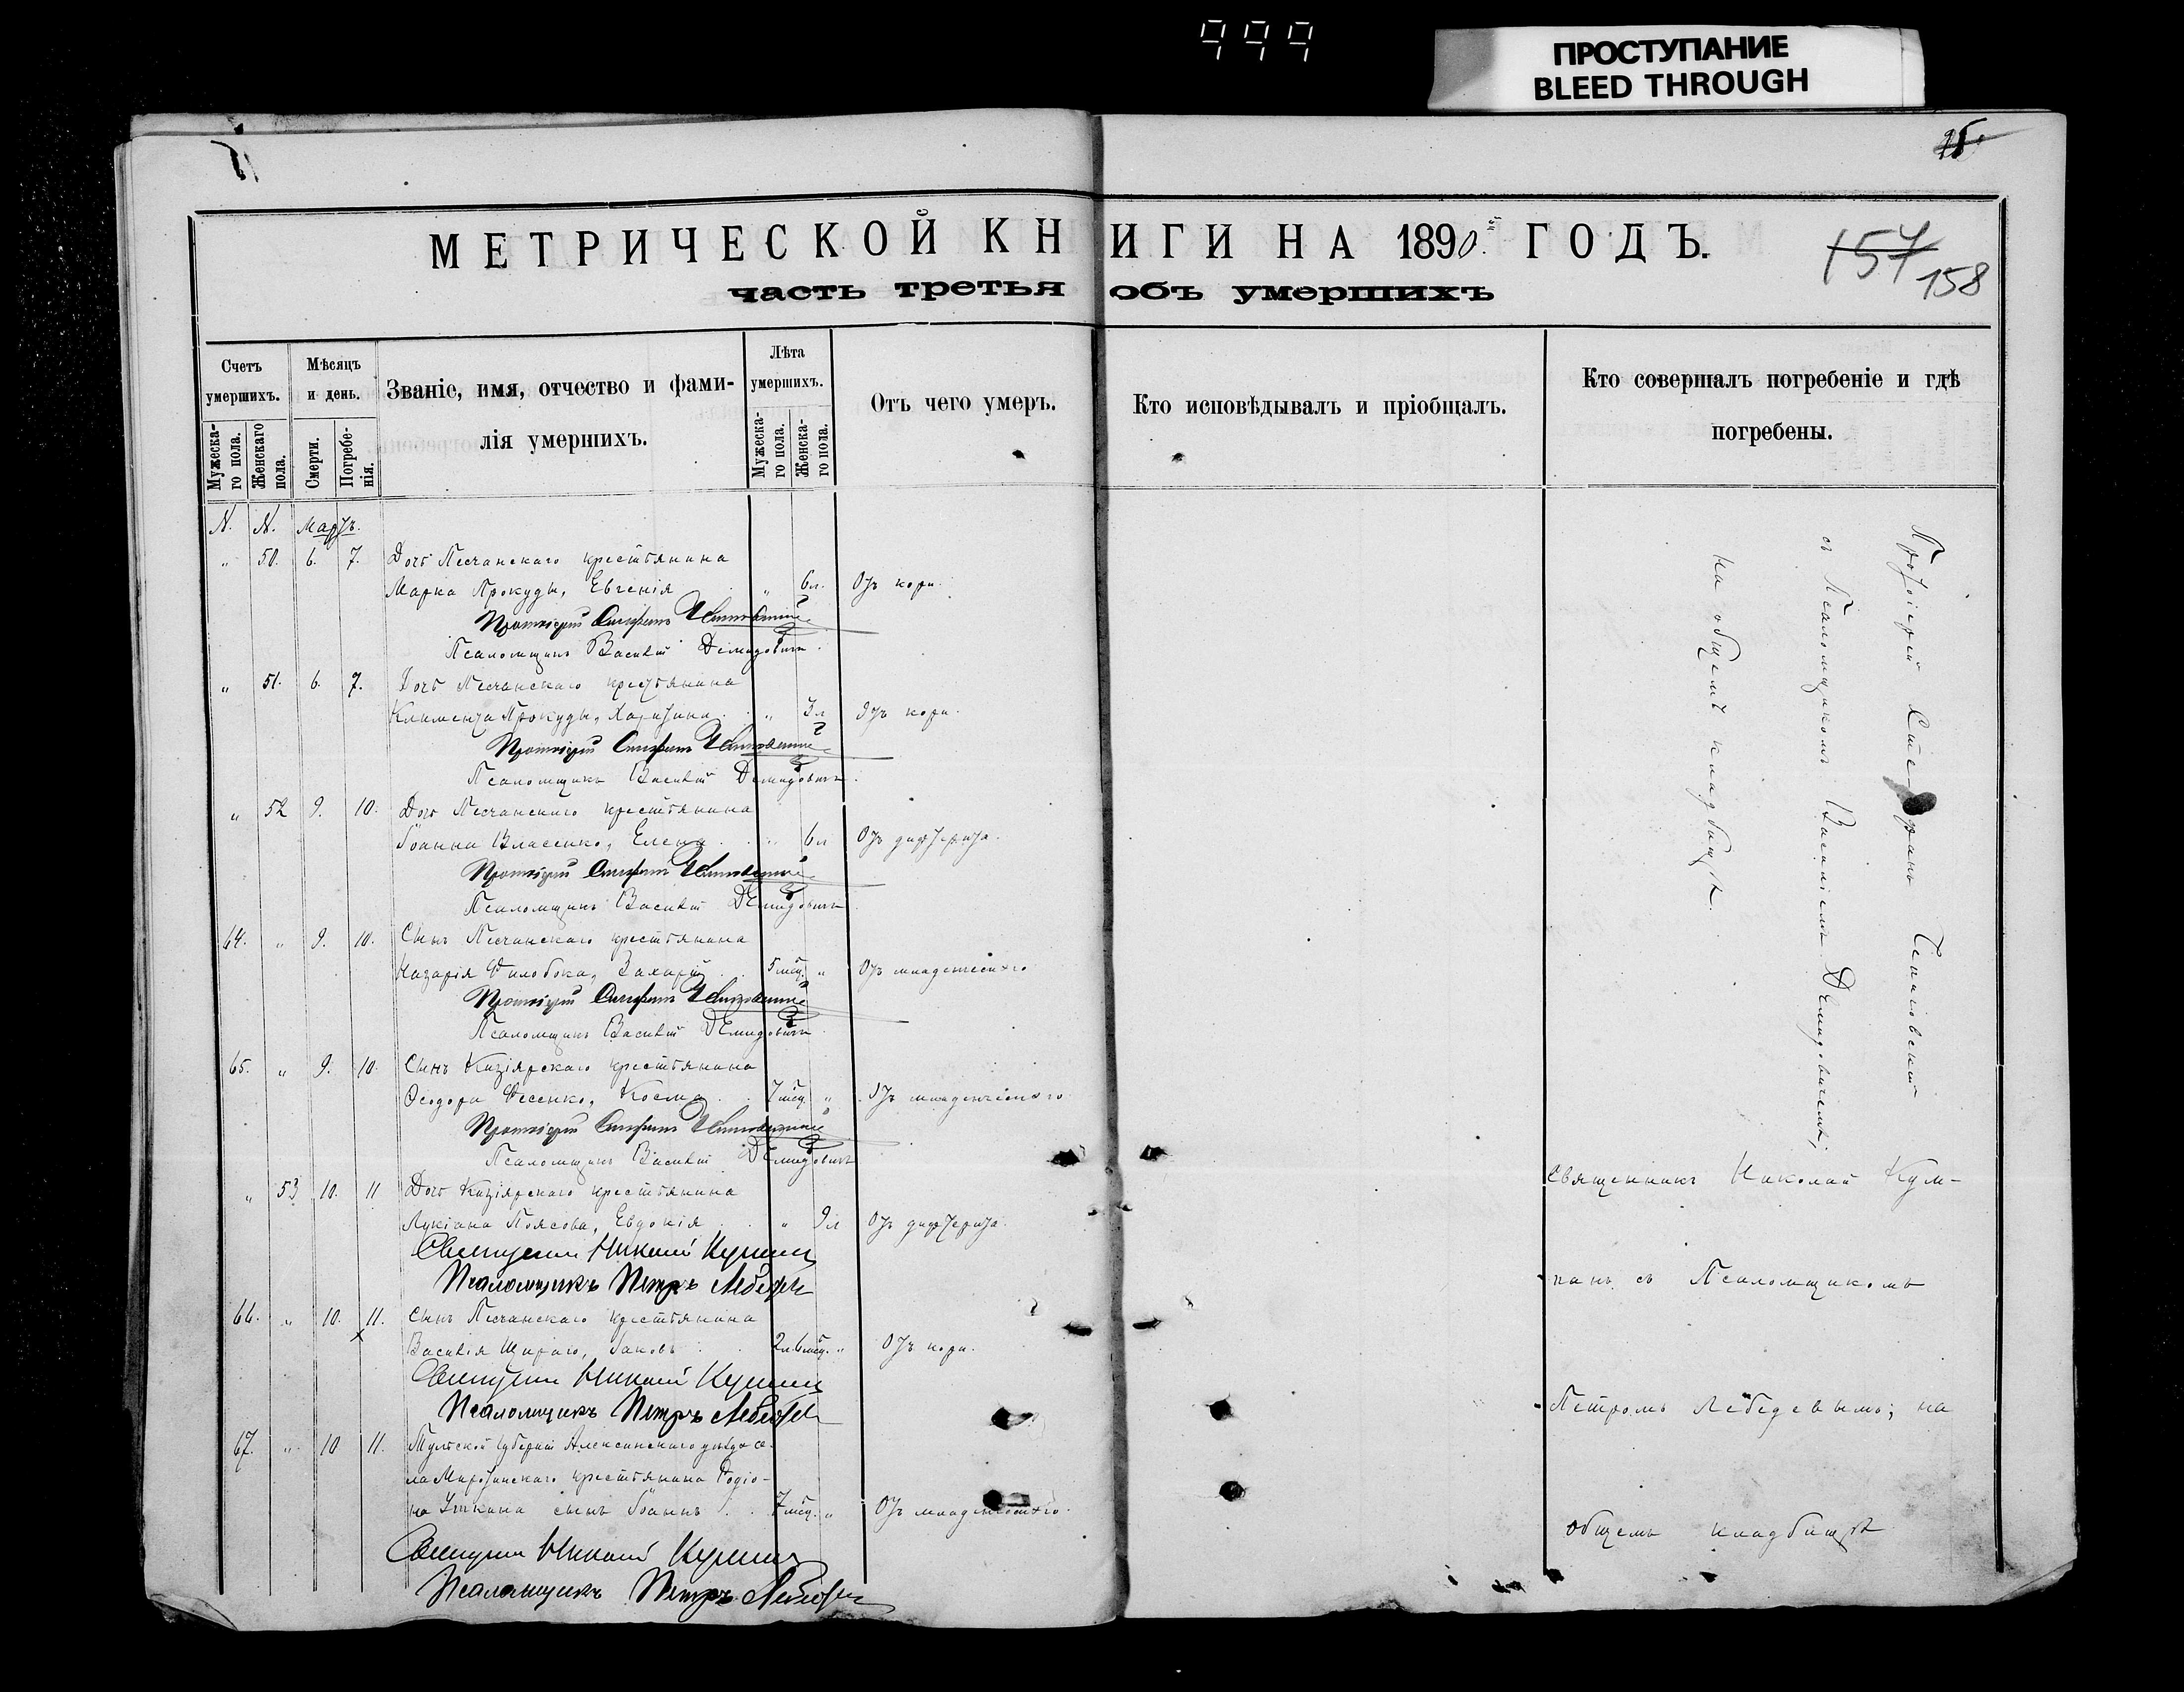 999
ПРОСТУПАНИЕ
BLEED THROUGH
25
МЕТРИЧЕСКОЙ КНИГИ НА 1890й ГОДЪ.
157
158
часть третья объ умершихъ
Счетъ умершихъ.
Мужеска-го пола.
Женскаго пола.
Мѣсяцъ и день.
Смерти.
Погребе-нія.
Званіе, имя, отчество и фами-
лія умершихъ.
Лѣта умершихъ.
Мужеска-го пола.
Женска-го пола.
Отъ чего умеръ.
Кто исповѣдывалъ и пріобщалъ.
Кто совершалъ погребеніе и гдѣ
погребены.
N. N. Мартъ.
" 50. 6. 7. Дочь Песчанскаго крестьянина
Марка Прокуды, Евгенія " 6 л. Отъ кори.
Протоіерей Стефанъ
Псаломщикъ Василій Демидовичъ.
" 51. 6. 7. Дочь Песчанскаго крестьянина
Климента Прокуды, Харитина " 3 л Отъ кори.
Протоіерей Стефанъ
Псаломщикъ Василій Демидовичъ.
" 52 9. 10. Дочь Песчанскаго крестьянина
Іоанна Власенко, Елена " 6 л Отъ дифтерита.
Протоіерей Стефанъ
Псаломщикъ Василій Демидовичъ
64. " 9. 10. Сынъ Песчанскаго крестьянина
Назарія Филобока, Захарій 5 мѣц. " Отъ младенческаго
Протоіерей Стефанъ
Псаломщикъ Василій Демидовичъ
65. " 9. 10. Сынъ Кизіярскаго крестьянина
Ѳеодора Фесенко, Косма 7 мѣц. " Отъ младенческаго
Протоіерей Стефанъ
Псаломщикъ Василій Демидовичъ
" 53 10. 11 Дочь Кизіярскаго крестьянина
Лукіана Поясова, Евдокія " 9 л Отъ дифтерита.
Священникъ Николай Кумпанъ
Псаломщикъ Петръ Лебедевъ
66. " 10. 11. Сынъ Песчанскаго крестьянина
Василія Щираго, Іаковъ 2 л. 6 мѣц. " Отъ кори.
Священникъ Николай Кумпанъ
Псаломщикъ Петръ Лебедевъ
67. " 10 11. Тульской губерніи Алексинскаго уѣзда се-
ла крестьянина Родіо-
на Уткина сынъ Іоаннъ 7 мѣц. " Отъ младенческаго.
Священникъ Николай Кумпанъ
Псаломщикъ Петръ Лебедевъ
Протоіерей Стефанъ
съ Псаломщикомъ Василіемъ Демидовичемъ,
на общемъ кладбищѣ.
Священникъ Николай Кум-
панъ съ Псаломщикомъ
Петромъ Лебедевымъ, на
общемъ кладбищѣ